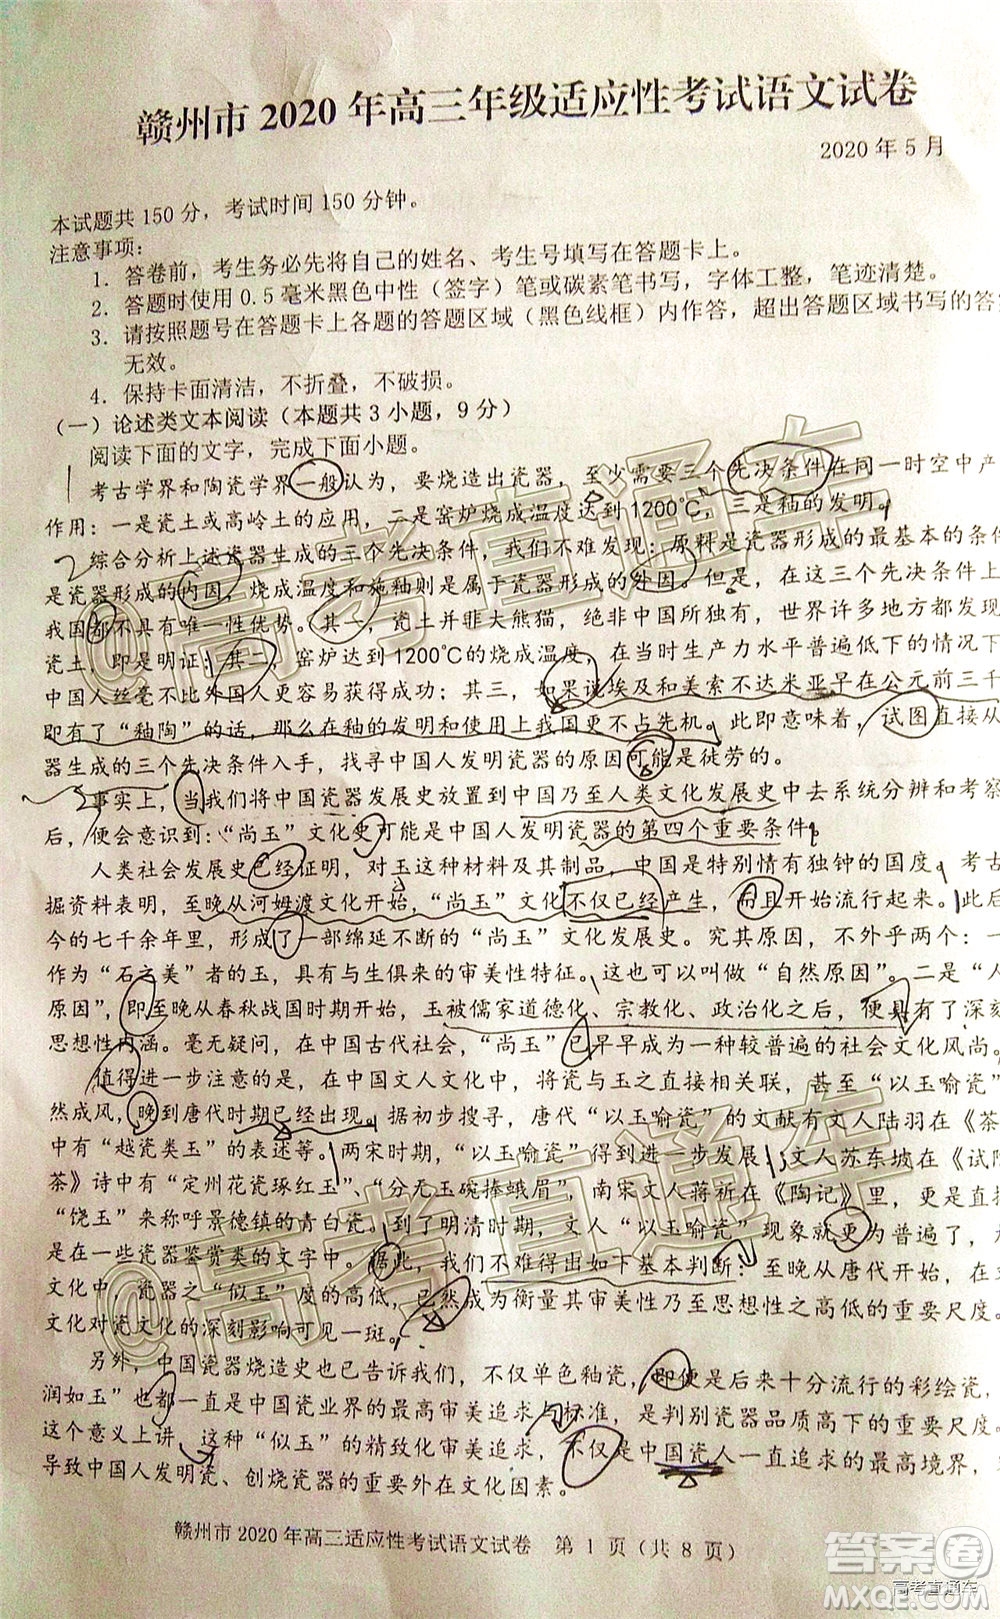 赣州市 2020 年高三年级适应性考试语文试卷
2020 年 5 月
本试题共 150 分，考试时间 150 分钟。
注意事项：
1. 答卷前，考生务必先将自己的姓名、考生号填写在答题卡上。
2. 答题时使用 0.5 毫米黑色中性（签字）笔或碳素笔书写，字体工整，笔迹清楚。
3. 请按照题号在答题卡上各题的答题区域（黑色线框）内作答，超出答题区域书写的答
无效。
4. 保持卡面清洁，不折叠，不破损。
（一）论述类文本阅读（本题共 3 小题，9 分）
阅读下面的文字，完成下面小题。
考古学界和陶瓷学界一般认为，要烧造出瓷器，至少需要三个先决条件在同一时空中产
作用：一是瓷土或高岭土的应用，二是窑炉烧成温度达到1200℃，三是釉的发明。
综合分析上述瓷器生成的三个先决条件，我们不难发现：原料是瓷器形成的最基本的条件
是瓷器形成的内因，烧成温度和施釉则是属于瓷器形成的外因。但是，在这三个先决条件上
我国都不具有唯一性优势。其一，瓷土并非大熊猫，绝非中国所独有，世界许多地方都发现
瓷土，即是明证；其二，窑炉达到1200℃的烧成温度，在当时生产力水平普遍低下的情况下
中国人丝毫不比外国人更容易获得成功；其三，如果说埃及和美索不达米亚早在公元前三千
即有了“釉陶”的话，那么在釉的发明和使用上我国更不占先机。此即意味着，试图直接从
器生成的三个先决条件入手，找寻中国人发明瓷器的原因可能是徒劳的。
事实上，当我们将中国瓷器发展史放置到中国乃至人类文化发展史中去系统分辨和考察
后，便会意识到：“尚玉”文化史可能是中国人发明瓷器的第四个重要条件。
人类社会发展史已经证明，对玉这种材料及其制品，中国是特别情有独钟的国度。考古
掘资料表明，至晚从河姆渡文化开始，“尚玉”文化不仅已经产生，而且开始流行起来。此后
今的七千余年里，形成了一部绵延不断的“尚玉”文化发展史。究其原因，不外乎两个：一
作为“石之美”者的玉，具有与生俱来的审美性特征。这也可以叫做“自然原因”。二是“人
原因”，即至晚从春秋战国时期开始，玉被儒家道德化、宗教化、政治化之后，便具有了深刻
思想性内涵。毫无疑问，在中国古代社会，“尚玉”已早早成为一种较普遍的社会文化风尚。
值得进一步注意的是，在中国文人文化中，将瓷与玉之直接相关联，甚至“以玉喻瓷”
然成风，晚到唐代时期已经出现。据初步搜寻，唐代“以玉喻瓷”的文献有文人陆羽在《茶
中有“越瓷类玉”的表述等。两宋时期，“以玉喻瓷”得到进一步发展：文人苏东坡在《试院
茶》诗中有“定州花瓷琢红玉”、“分无玉碗捧蛾眉”，南宋文人蒋祈在《陶记》里，更是直接
“饶玉”来称呼景德镇的青白瓷。到了明清时期，文人“以玉喻瓷”现象就更为普遍了，
是在一些瓷器鉴赏类的文字中。据此，我们不难得出如下基本判断：至晚从唐代开始，在
文化中，瓷器之“似玉”度的高低，已然成为衡量其审美性乃至思想性之高低的重要尺度。
文化对瓷文化的深刻影响可见一斑。
另外，中国瓷器烧造史也已告诉我们，不仅单色釉瓷，即便是后来十分流行的彩绘瓷，
润如玉”也都一直是中国瓷业界的最高审美追求与标准，是判别瓷器品质高下的重要尺度。
这个意义上讲，这种“似玉”的精致化审美追求，不仅是中国瓷人一直追求的最高境界，
导致中国人发明瓷、创烧瓷器的重要外在文化因素。
赣州市 2020 年高三适应性考试语文试卷　第 1 页（共 8 页）
@高考直通车
@高考直通车
答案圈
MXQE.COM
高考直通车